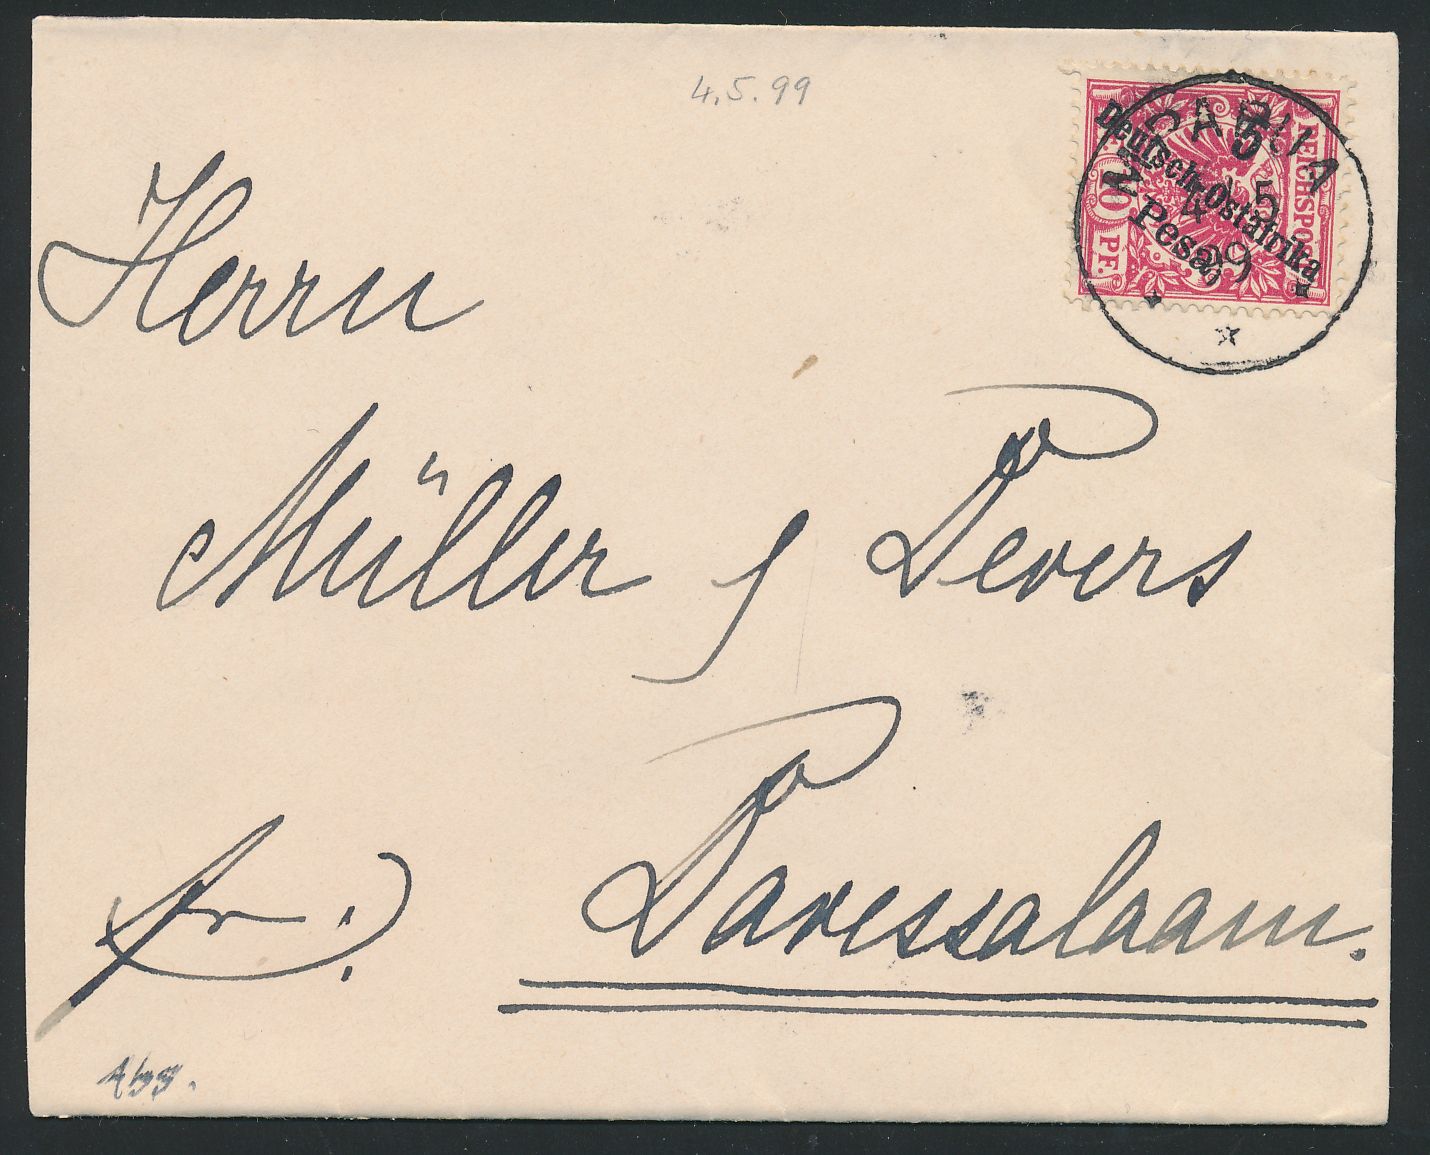 4.5.99
REICHSPOST
10 PF.
5
Deutsch-Ostafrika
Pesa
MPAPUA
4 5
99
Herrn
Müller & Devers
fr.
Daressalaam.